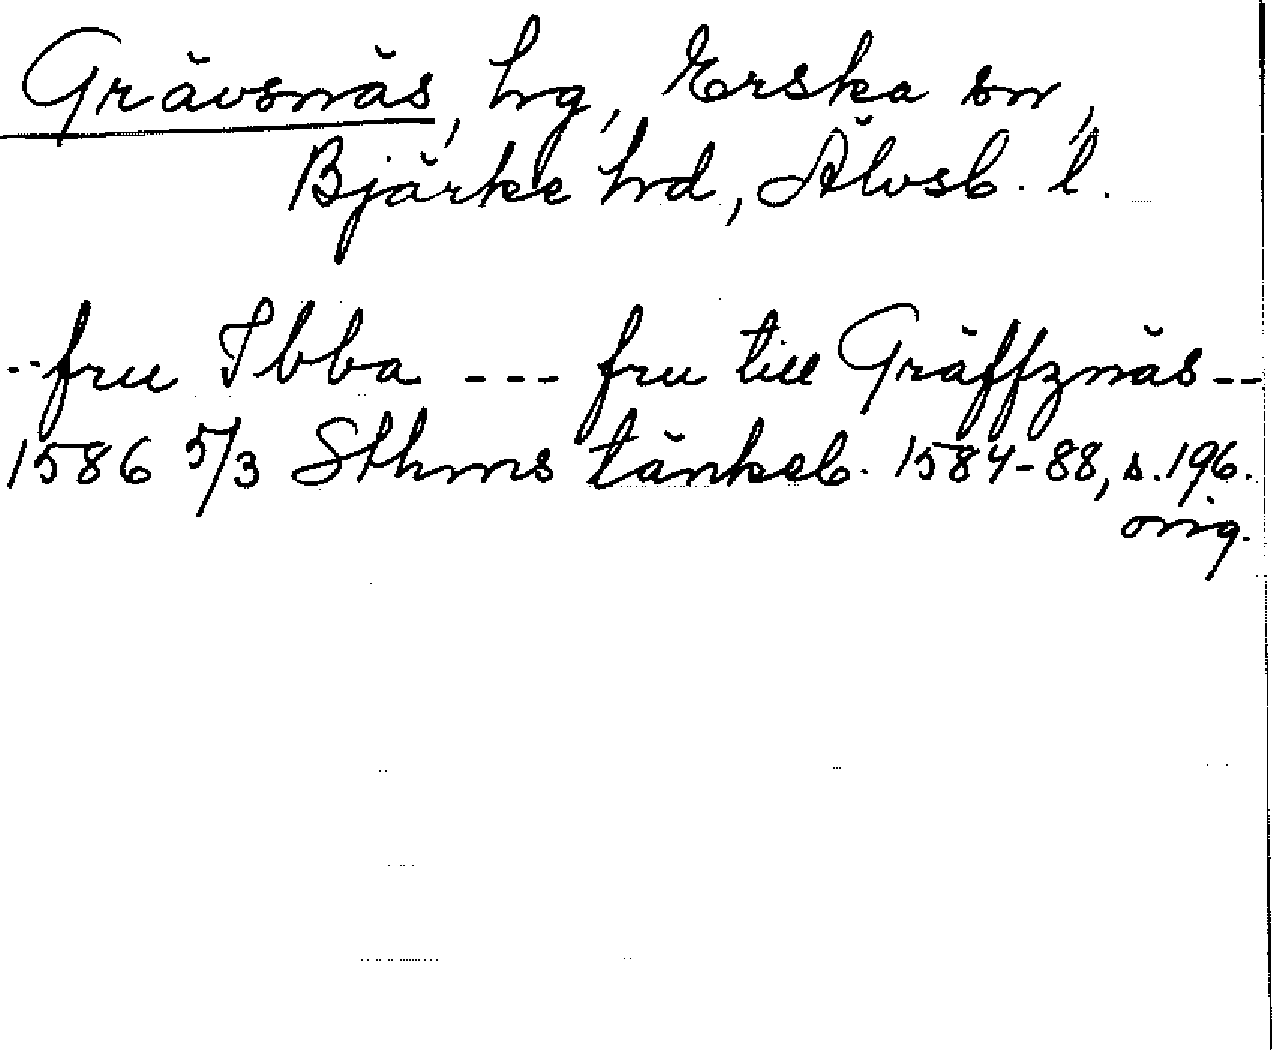 Grävsnäs, hrg, Erska sn,
Bjärke hrd, Älvsb. l.
--fru Ibba --- fru till Gräffznäs--
1586 5/3 Sthms tänkeb. 1584-88, s. 196.
orig.